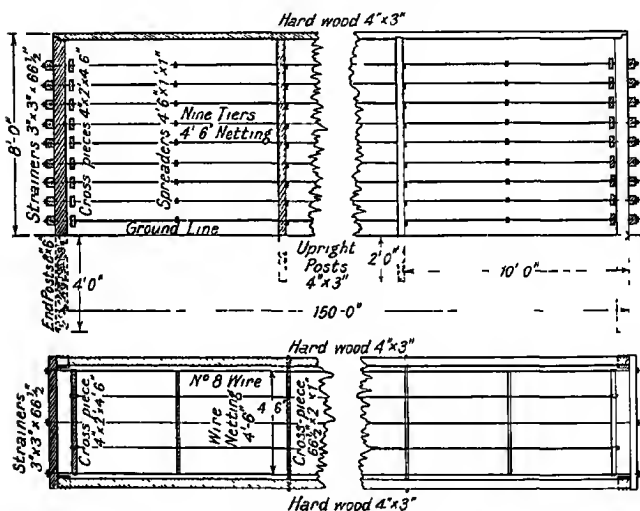 Hard wood 4"×3"
8'-0"
Strainers 3"×3"×66½"
Cross pieces 4"×2"×4'6"
Spreaders 4'6"×1"×1"
Nine Tiers
4' 6" Netting
Ground Line
End Posts
4'0"
Upright
Posts
4"×3"
2'0"
10' 0"
150-0"
Hard wood 4"×3"
Strainers
3"×3"×66½"
Cross piece
4"×2"×4'6"
Nº 8 Wire
Wire
Netting
4'-6"
4' 6"
Cross-piece
66½"×2"×1"
Hard wood 4"×3"